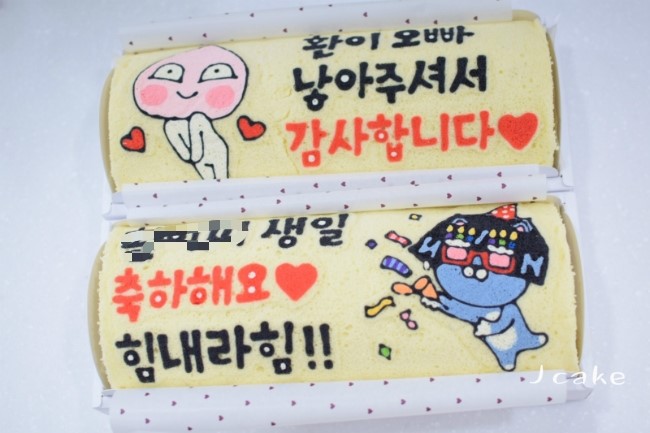 환이 오빠
낳아주셔서
감사합니다
생일
축하해요
힘내라힘!!
J cake